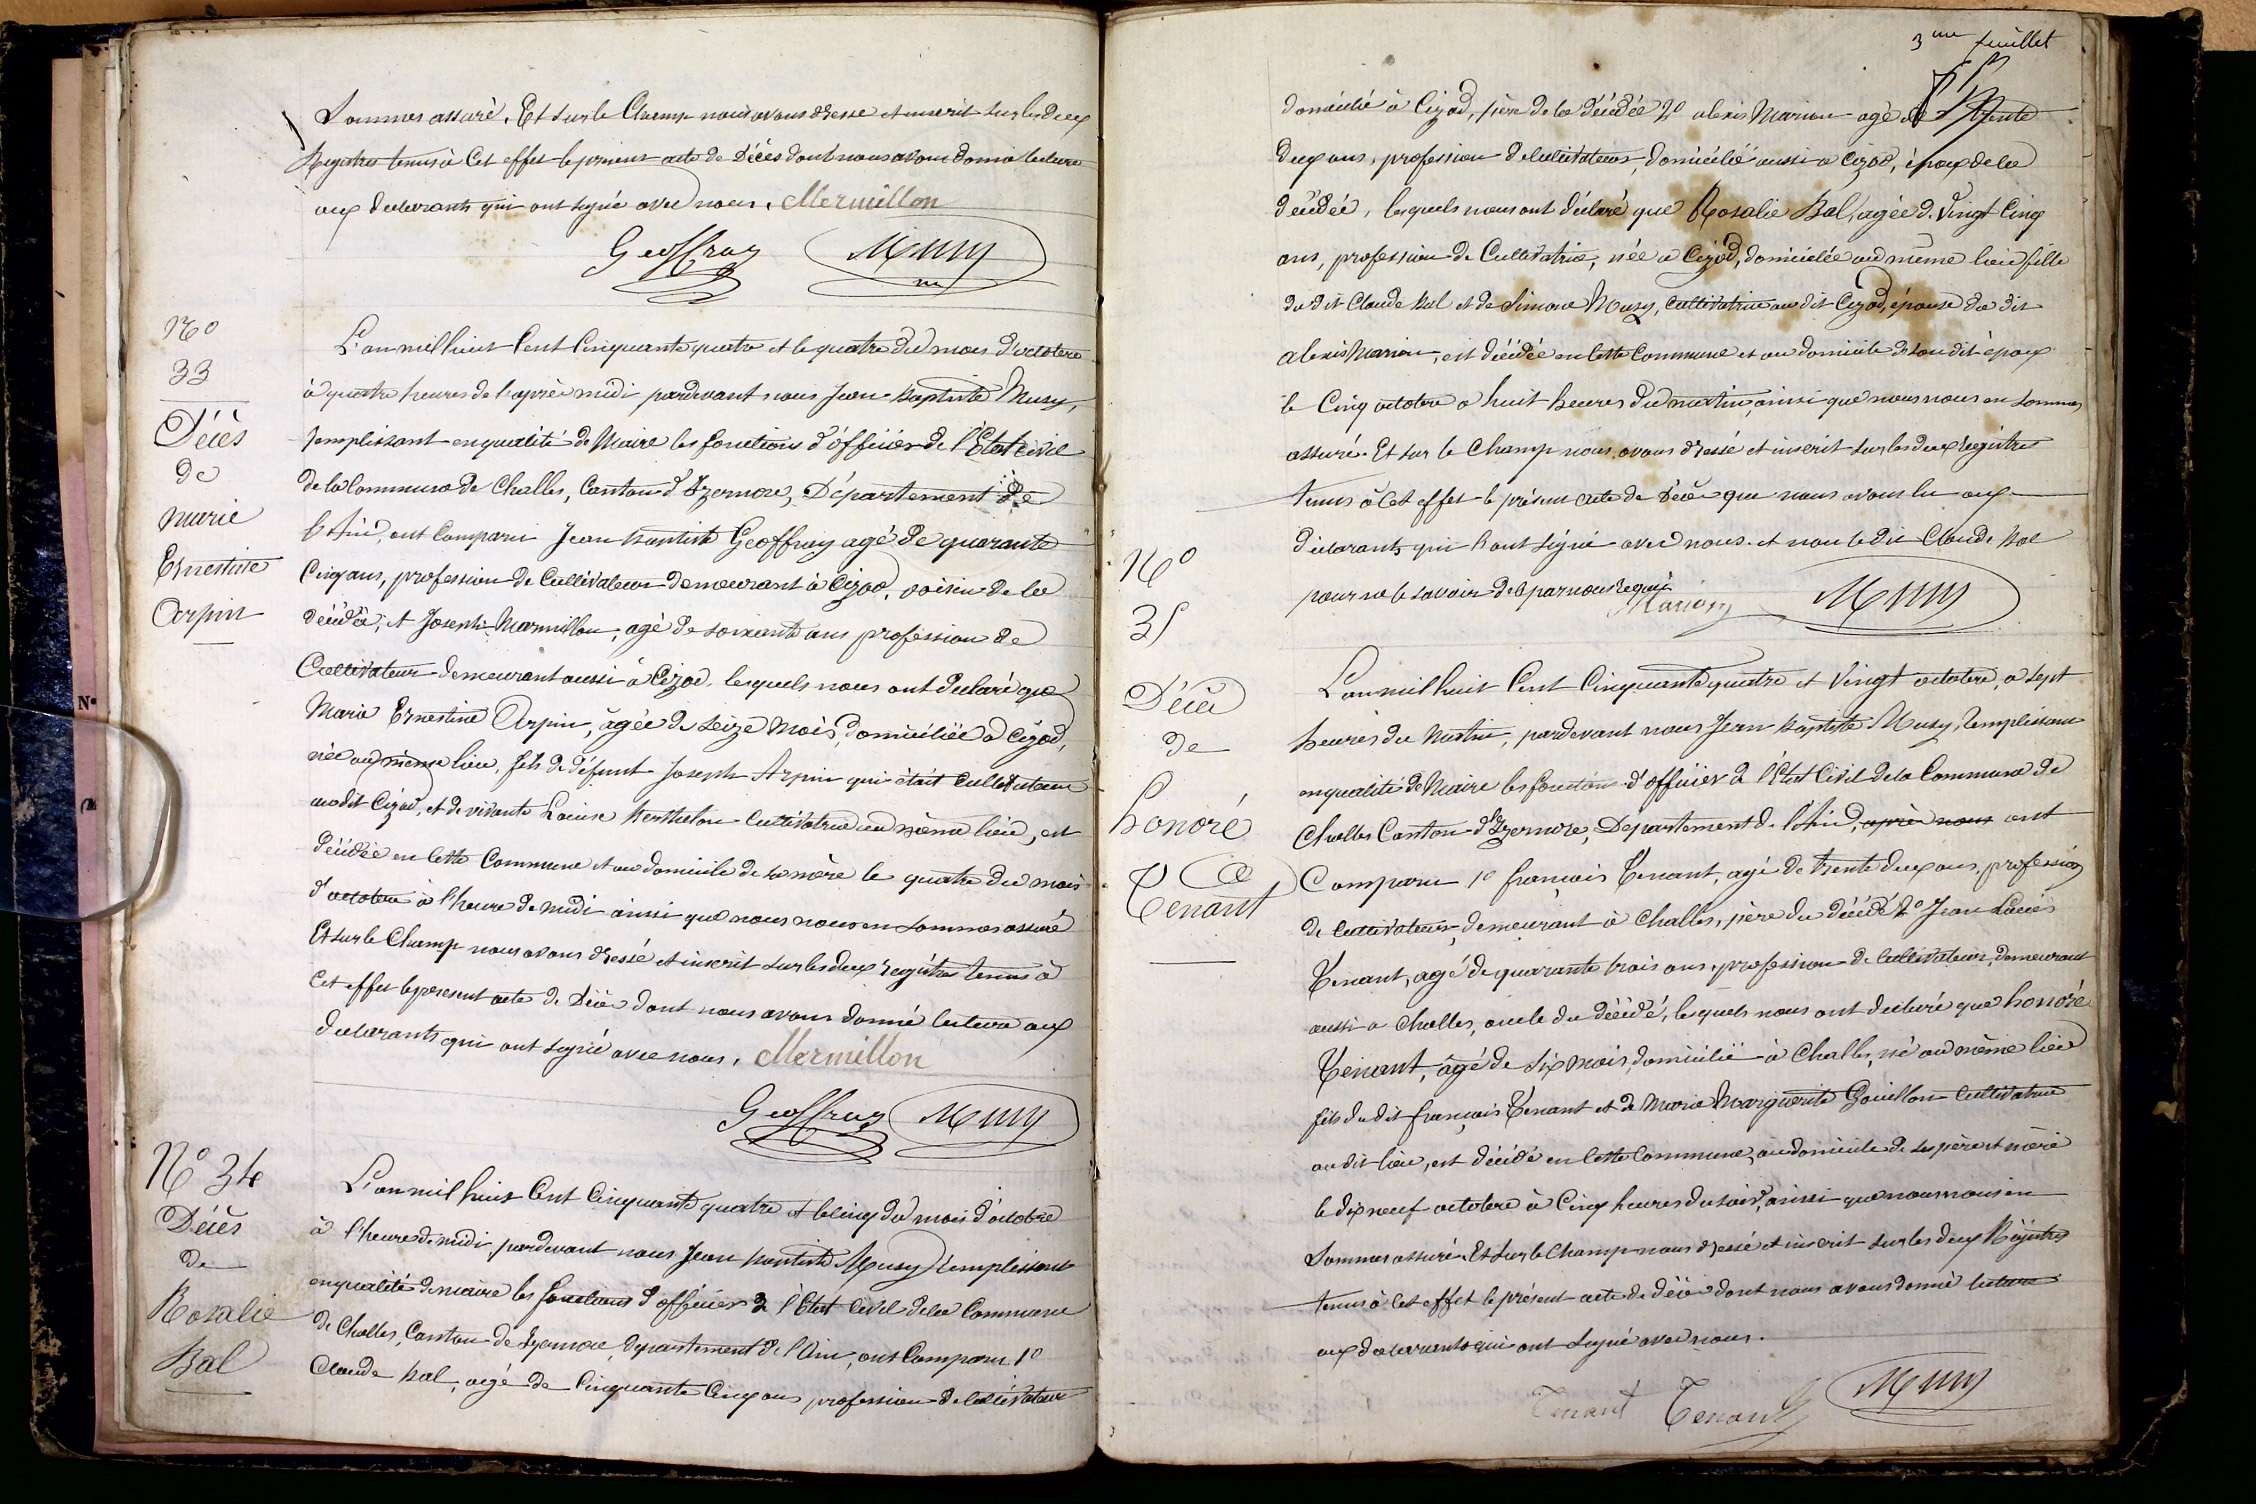 Sommes assuré. Et sur le Champ nous avons dressé et inscrit sur les deux
Registres tenus à Cet effet le présent acte de Décès dont nous avons donné lecture
aux déclarants qui ont signé avec nous. Mermillon
Geoffray Musy
N°
33
Décès
de
marie
Ernestine
Arpin
L'an mil huit Cent Cinquante quatre et le quatre du mois d'octobre
à quatre heures de l'après midi pardevant nous Jean Baptiste Musy,
remplissant en qualité de Maire les fonctions d'officier de l'État civil
de la Commune de Challes, Canton d'Izernore, Département de
l'Ain, ont Comparu Jean Baptiste Geoffray agé de quarante
Cinq ans, profession de Cultivateur demeurant à Cizod, voisin de la
décédée, et Joseph Marmillon, agé de soixante ans profession de
Cultivateur demeurant aussi à Cizod, lesquels nous ont déclaré que
Marie Ernestine Arpin, âgée de seize mois, domiciliée à Cizod,
née au même lieu, fils de défunt Joseph Arpin qui était Cultivateur
audit Cizod, et de vivante Louise Berthelon Cultivatrice au même lieu, est
décédée en Cette Commune et au domicile de sa mère le quatre du mois
d'octobre à l'heure de midi ainsi que nous nous en sommes assuré
Et sur le Champ nous avons dressé et inscrit sur les deux registres tenus à
Cet effet le present acte de Décès dont nous avons donné lecture aux
déclarants qui ont signé avec nous. Mermillon
Geoffray Musy
N° 34
Décès
de
Rosalie
Bal
L'an mil huit Cent Cinquante quatre et le cinq du mois d'octobre
à l'heure de midi pardevant nous Jean Baptiste Musy remplissant
en qualité de maire les fonctions d'officier de l'État Civil de la Commune
de Challes, Canton de Izernore, département de l'Ain, ont Comparu 1°
Claude Bal, agé de Cinquante Cinq ans profession de Cultivateur
3me feuillet
domicilié à Cizod, père de la décédée 2° alexis Marion agé de trente
deux ans, profession de Cultivateur, domicilié aussi à Cizod, époux de la
décédée, lesquels nous ont déclaré que Rosalie Bal, agée de Vingt Cinq
ans, profession de Cultivatrice, née a Cizod, domiciliée aud même lieu fille
du dit Claude Bal et de Simone Musy, Cultivatrice au dit Cizod, épouse du dit
alexis Marion, est décédée en Cette Commune et au domicile de son dit époux
le Cinq octobre a huit heures du matin, ainsi que nous nous en sommes
assuré. Et sur le Champ nous avons dressé et inscrit sur les deux registres
tenus à Cet effet le présent acte de Décès que nous avons lu aux
déclarants qui l'ont signé avec nous et non le dit Claude Bal
pour ne le savoir de le par nous requis
Marion Musy
N°
35
Décès
de
honoré
Tenant
L'an mil huit Cent Cinquante quatre et Vingt octobre, a sept
heures du Matin, pardevant nous Jean Baptiste Musy, remplissant
en qualité de Maire les fonctions d'officier de l'État Civil de la Commune de
Challes Canton d'Izernore, Département de l'Ain, après nous ont
Comparu 1° françois Tenant, agé de trente deux ans, profession
de Cultivateur, demeurant à Challes, père du décédé 2° Jean Louis
Tenant, agé de quarante trois ans, profession de Cultivateur, demeurant
aussi a Challes, oncle du décédé, lesquels nous ont déclaré que honoré
Tenant, âgé de six mois, domicilié à Challes, né au même lieu
fils du dit françois Tenant et de Marie Marguerite Gouillon Cultivatrice
au dit lieu, est décédé en Cette Commune, au domicile de ses père et mère
le dix neuf octobre à Cinq heures du soir, ainsi que nous nous en
sommes assuré. Et sur le Champ nous dressé et inscrit sur les deux Régistres
tenus à Cet effet le présent acte de décès dont nous avons donné lecture
aux déclarants qui ont signé avec nous.
Tenant Tenant Musy